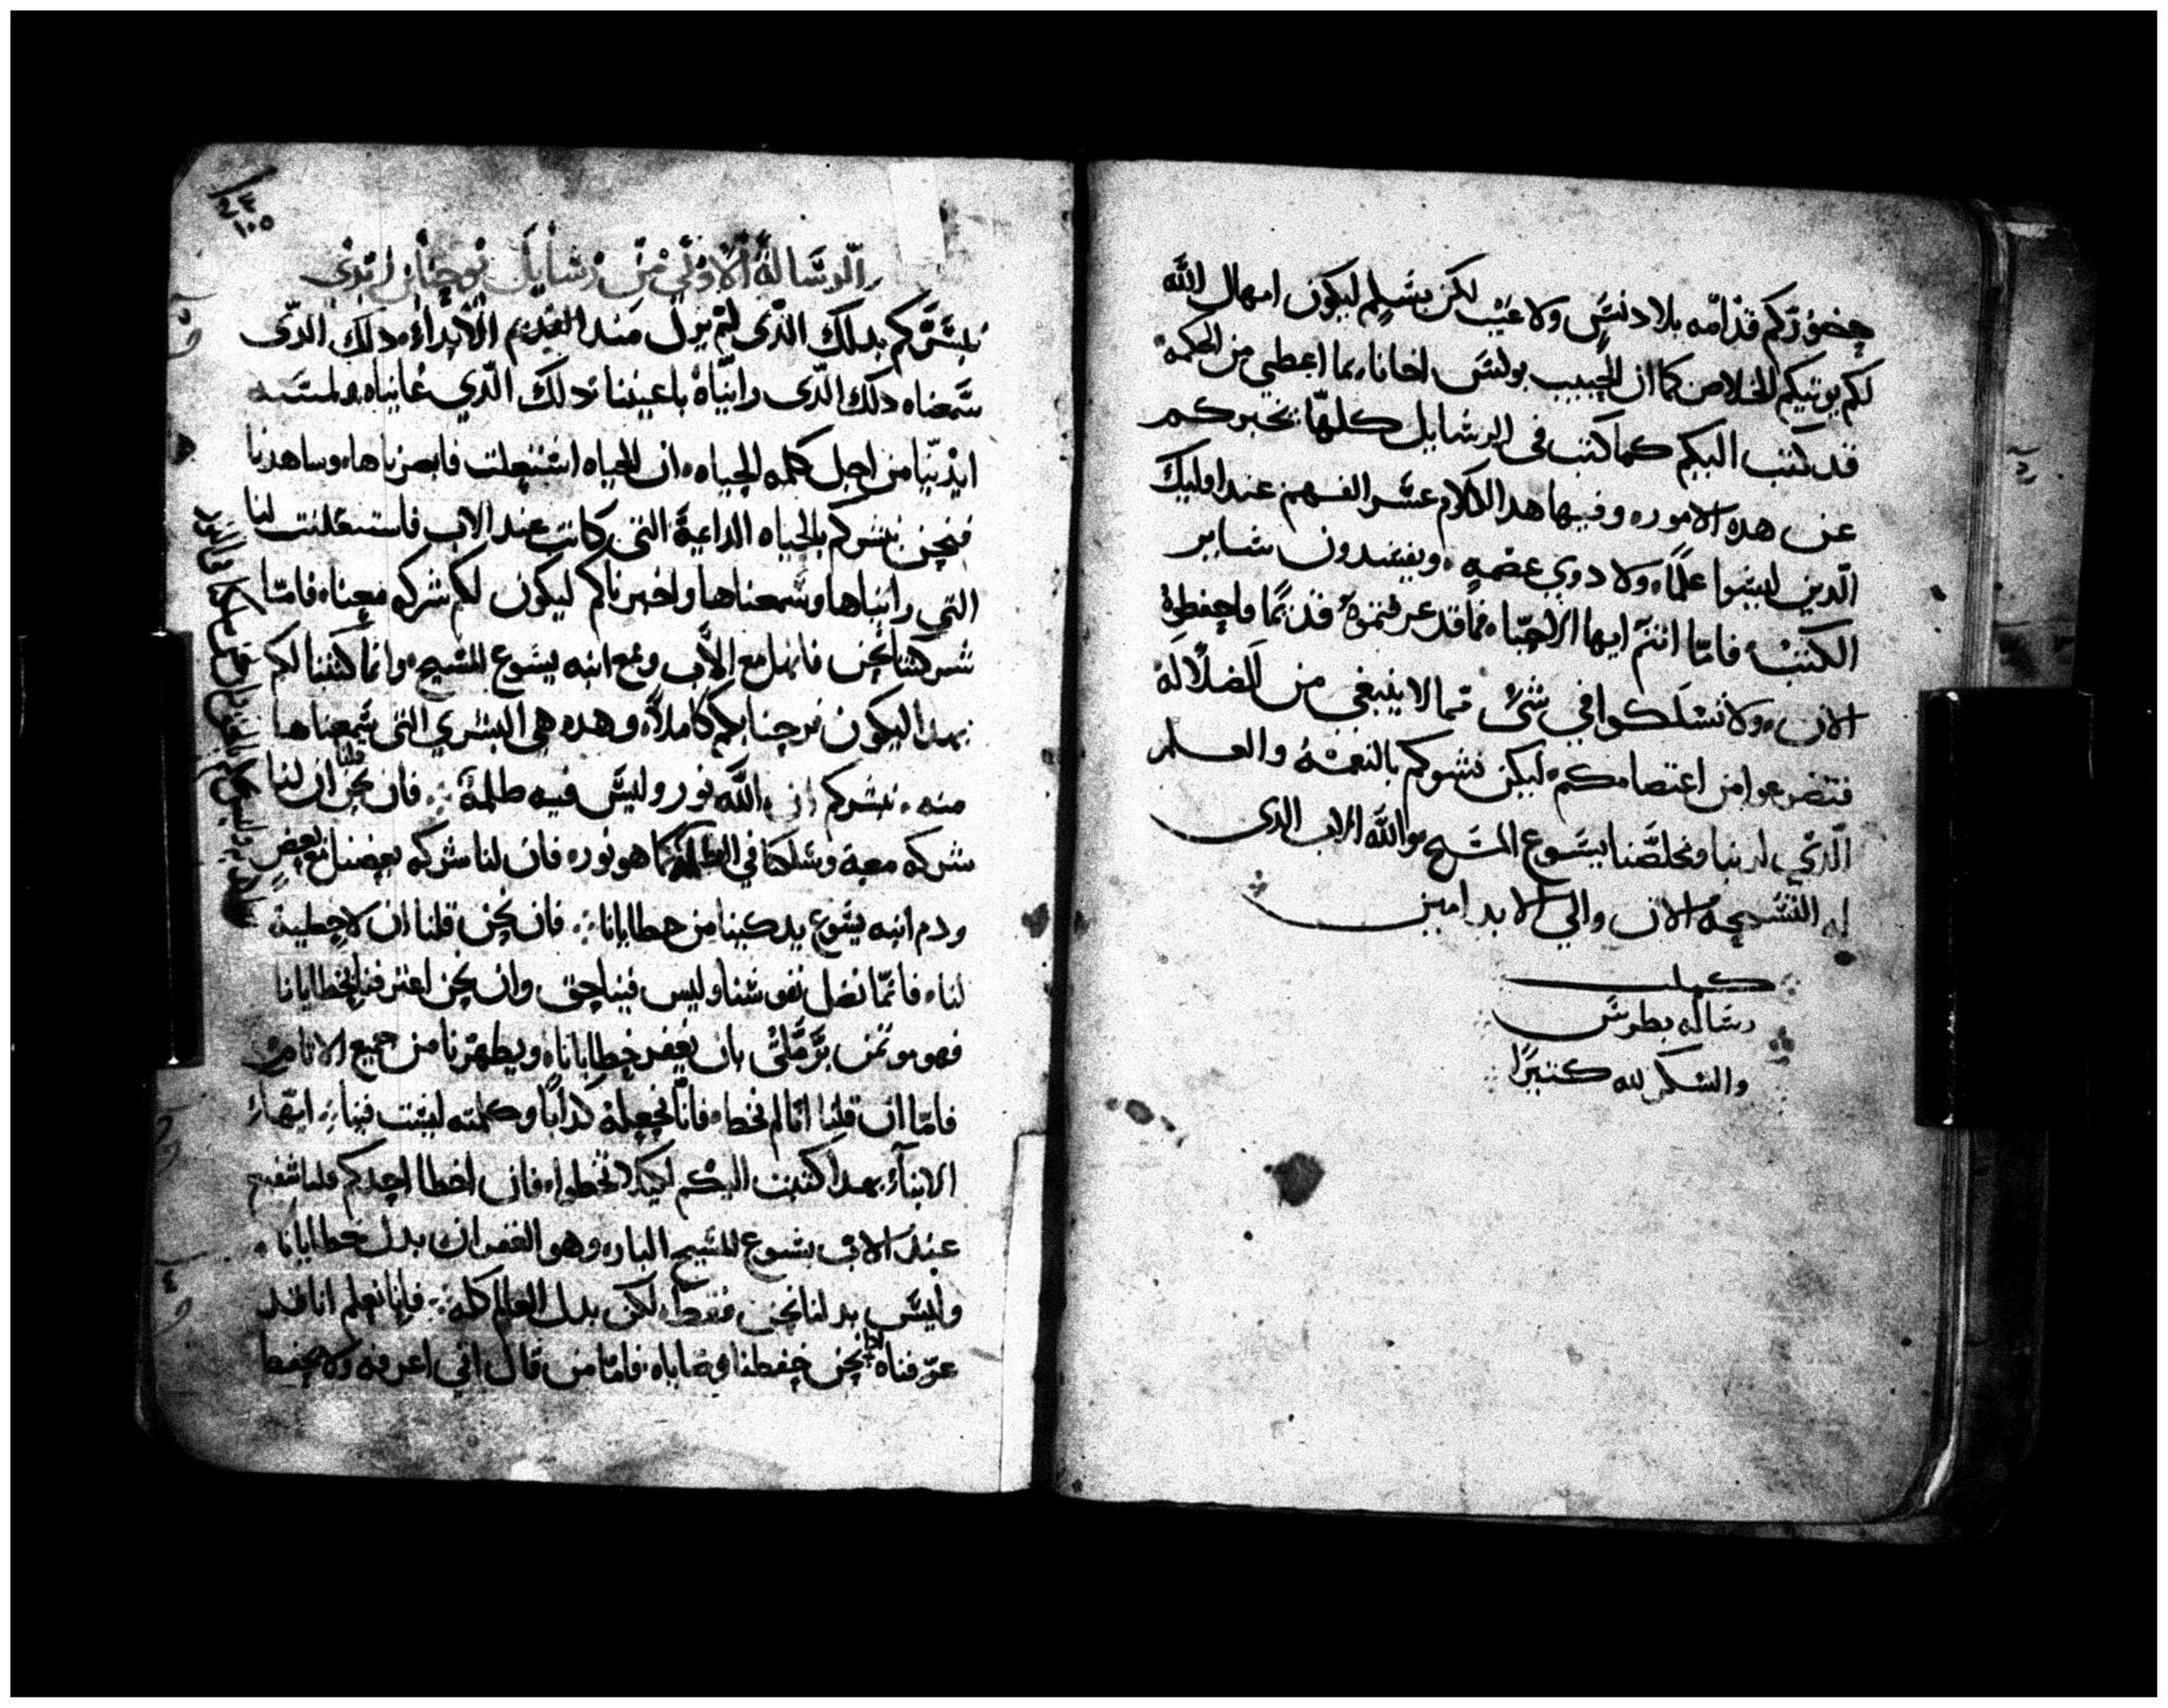 حضوركم قدامه بلا دنس ولا عيب لكن بسلم ليكون امهال الله
لكم يوتيكم الخلاص كما ان الحبيب بولس اخانا بما اعطي من الحكمه
قد كتب اليكم كما كتب في الرسايل كلها يخبركم
عن هده الامور وفيها هدا الكلام عسر الفهم عند اوليك
الدين ليسوا علما ولا دوي عصمه ويفسدون ساير
الكتب فاما انتم ايها الاحبا فما قد عرفتموه قدىما فاحفظوه
الان ولا تسلكوا في شي مما لا ينبغي من الضلاله
فتضرعوا من اعتصامكم ليكن نشوكم بالنعمه والعلم
الدي لربنا ومخلصنا يسوع المسيح والله الاب الدي
له التسبحه الان والي الابد امين
كملت
رساله بطرس
والشكر لله كتيرا
٢٣
١٠٥
الرسالة الاولي من رسايل يوحنا بن زبدي
نبشركم بدلك الدي لم يزل مند القديم الابتدا دلك الدي
سمعناه دلك الدي رايناه باعيننا دلك الدي عايناه ولمسته
ايدينا من اجل كلمه الحياه ان الحياه استعلت فابصرناها وساهدنا
فنحن نبشركم بالحياه الداعية التي كانت عند الاب فاستعلنت لنا
التي رايناها وسمعناها واخبرناكم ليكون لكم شركه معنا فاما
شركتنا نحن فانها مع الاب ومع ابنه يسوع المسيح وانما كتبنا لكم
بهدا ليكون فرحنا بكم كاملا وهده هي البشري التي سمعناها
منه نبشركم ان الله نور وليس فيه ظلمة فان نحن قلنا ان لنا
شركه معه وسلكنا في الظلمة كما هو نور فان لنا شركه بعضنا مع بعض
ودم ابنه يسوع يدكينا من خطايانا فان نحن قلنا ان لا خطية
لنا فانما نضل نفوسنا وليس فينا حق وان نحن اعترفنا بخطايانا
فهو موتمن بر ملي بان يغفر خطايانا ويطهرنا من جميع الاثام
فاما ان قلنا انا لم نخطا فانا نجعله كدابا وكلمته ليست فينا ايها
الابنا بهدا كتبت اليكم لكيلا تخطوا فان اخطا احدكم فلنا شفيع
عند الاب يسوع المسيح البار وهو الغفران بدل خطايانا
وليس بدلنا نحن فقط لكن بدل العالم كله فانا نعلم انا قد
عرفناه ادا نحن حفظنا وصاياه فاما من قال اني اعرفه ولا يحفظ